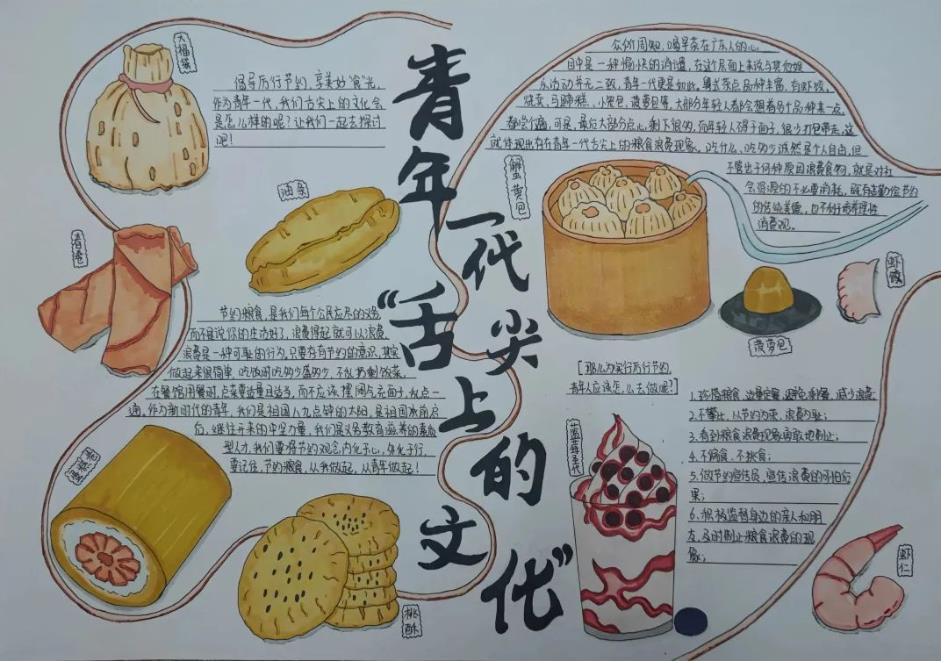 青年一代
“舌尖上的文化”
大福袋
倡导厉行节约,享美好“食”光,
作为青年一代,我们舌尖上的文化会
是怎么样的呢?让我们一起去探讨
吧!
油条
春卷
节约粮食,是我们每个公民应尽的义务,
而不是说你的生活好了,浪费得起就可以浪费,
浪费是一种可耻的行为,只要存有节约的意识,其实
做起来很简单:吃饭时吃多少盛多少,不
在餐馆用餐时,点菜要适量且适当,而不应该摆阔气,
作为新时代的青年,我们是祖国八九点钟的太阳,是祖国承前启
后,继往开来的中坚力量,我们是义务教育滋养的素质
型人才,我们要将节约的观念,内化于心,外化于行,
要记住,节约粮食,从我做起,从青年做起!
蛋糕卷
桃酥
众所周知,喝早茶在广东人的心
目中是一种愉快的消遣,在这个层面上来说与其他娱
乐活动并无二致,青年一代更是如此。粤式茶点品种丰富,有虾饺,
烧卖,马蹄糕,小笼包,菠萝包等,大部分年轻人都会想着多个品种来一点
都尝个遍,可是,最后大部分点心,剩下很多,而年轻人碍于面子,很少打包带走,这
就体现出存在青年一代舌尖上的粮食浪费现象。吃什么、吃多少诚然是个人自由,但
不管出于何种原因浪费食物,就是对社
会资源的不必要消耗,既有违勤俭节约
的传统美德,也不利于培养理性
消费观。
蟹黄包
虾饺
菠萝包
[那么为实行厉行节约,
青年人应该怎么去做呢?]
1.珍惜粮食,适量定餐,避免剩餐,减少浪费
2.不攀比,以节约为荣,浪费为耻;
3.看到粮食浪费现象勇敢地制止;
4.不偏食、不挑食;
5.做节约宣传员,宣传浪费的可怕后
果;
6.积极监督身边的亲人和朋
友,及时制止粮食浪费的现
象;
蓝莓圣代
虾仁